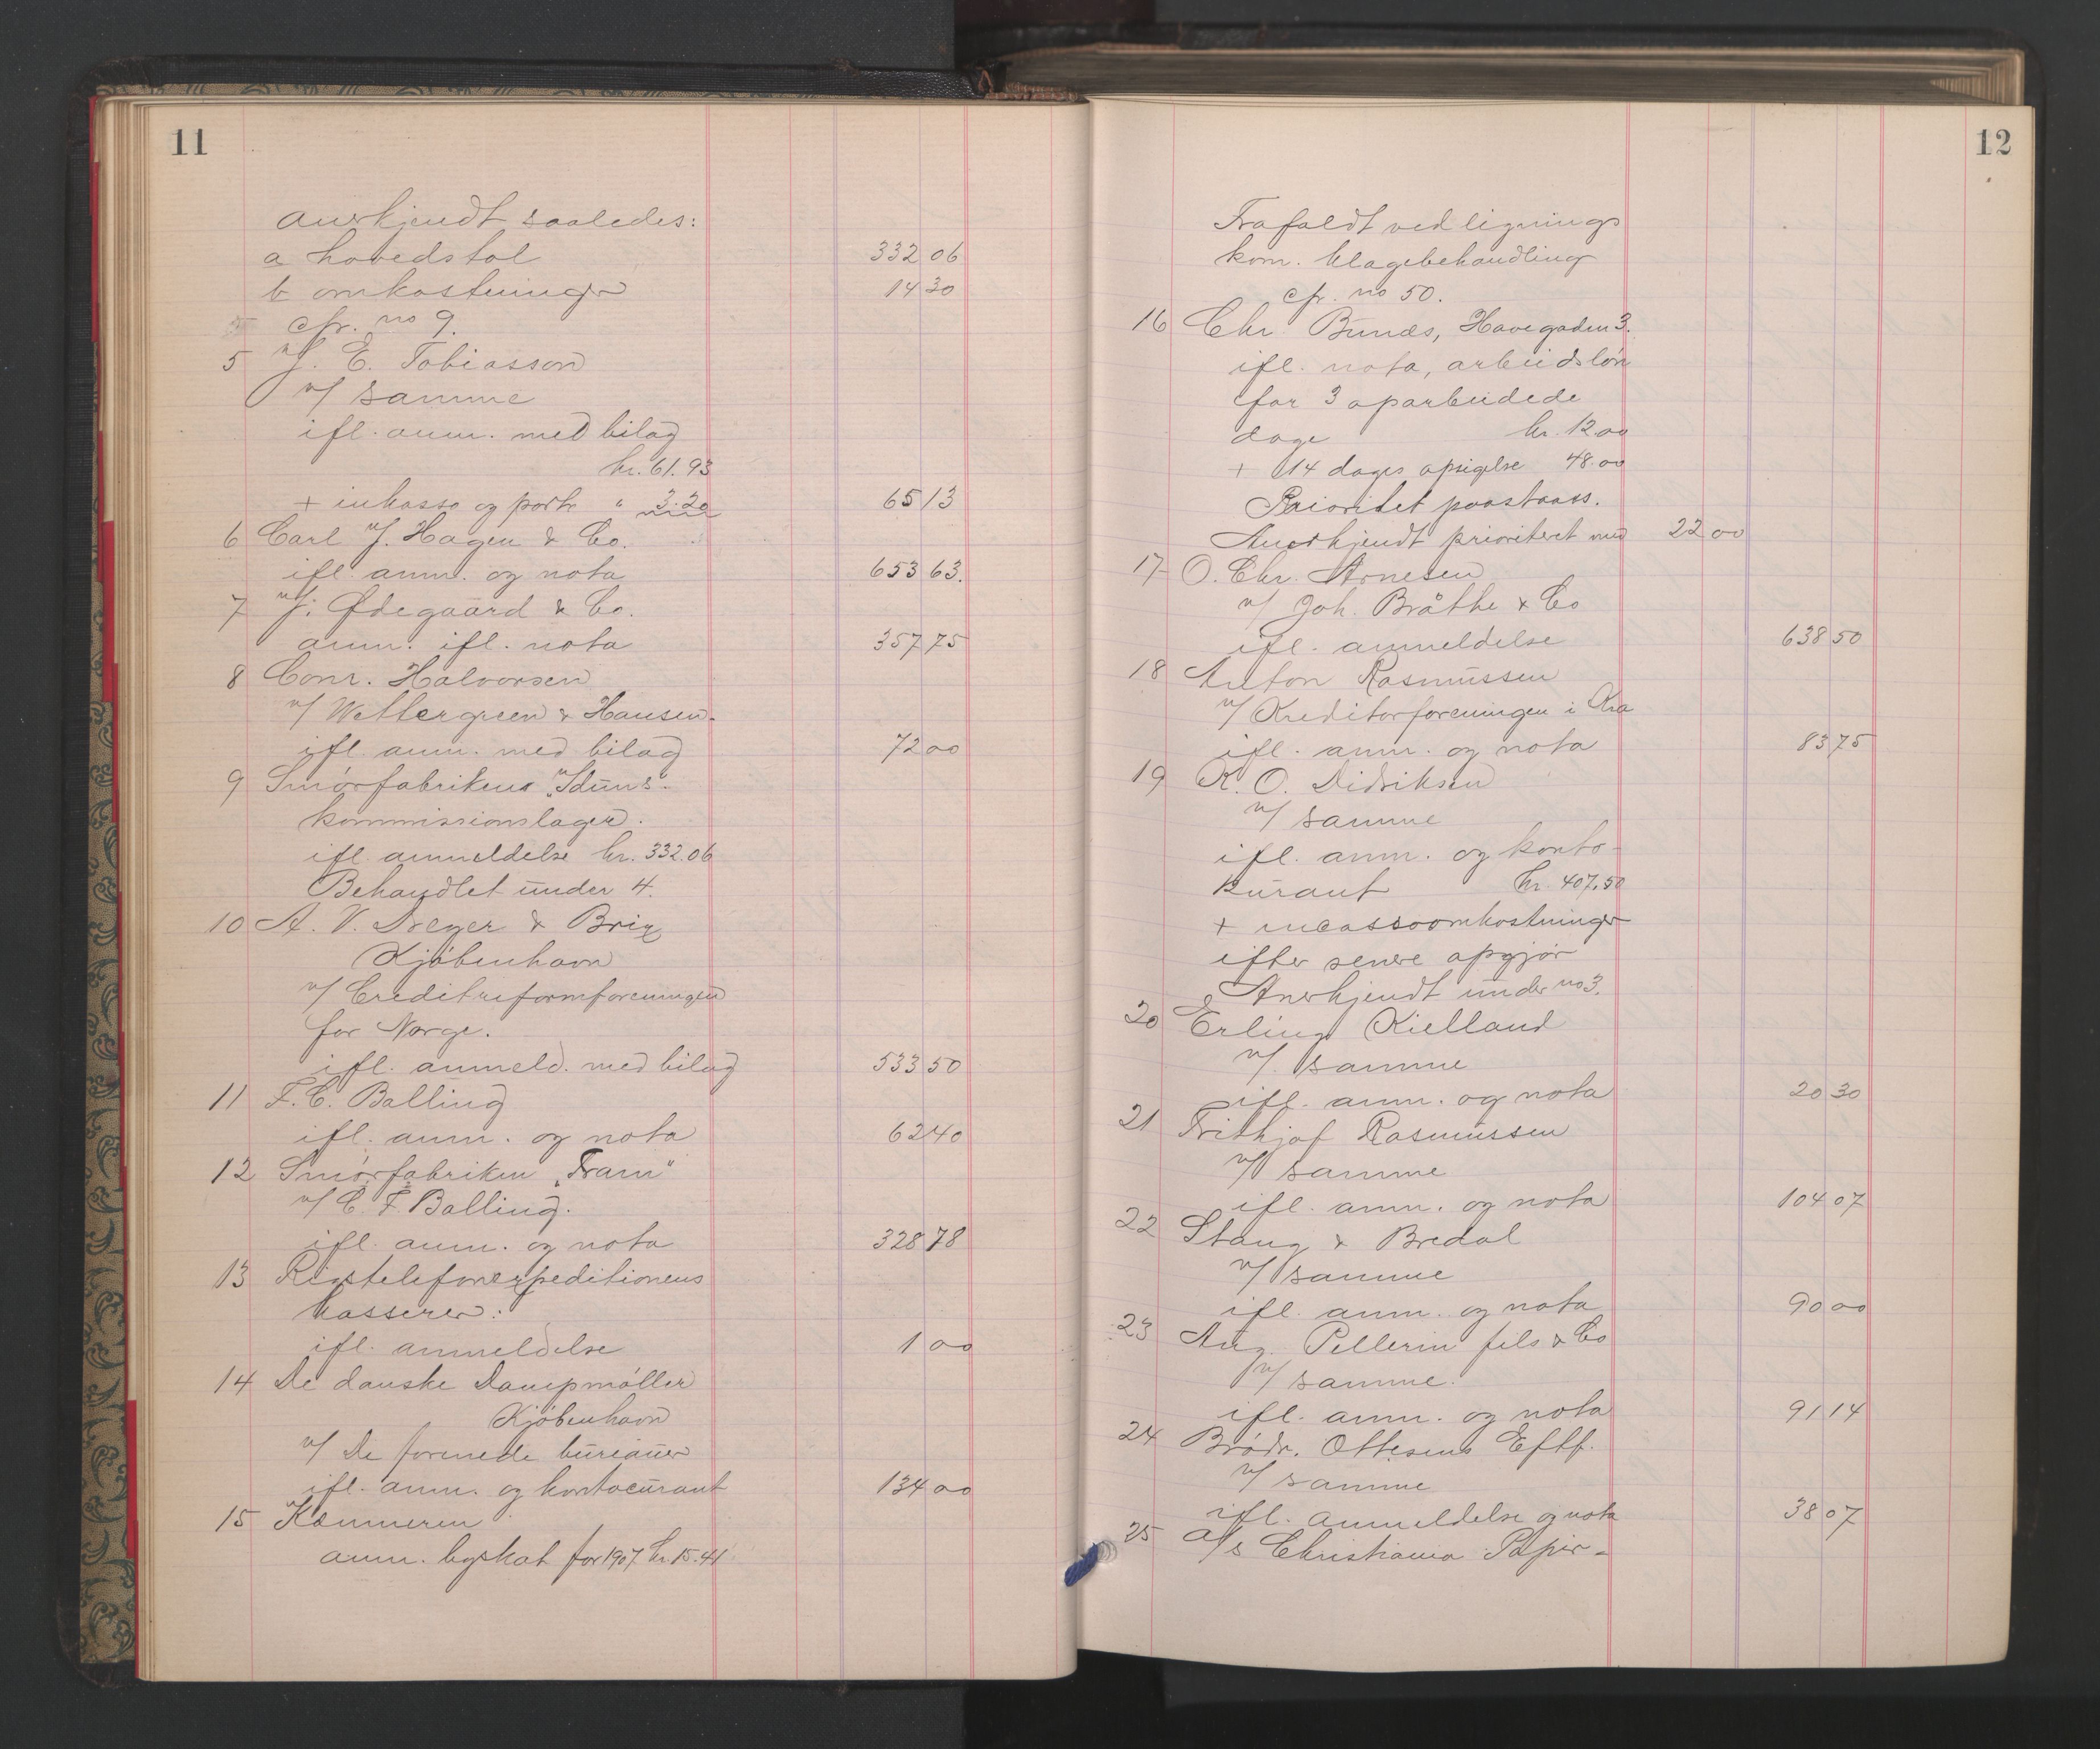 11
anerkjendt saaledes:
a hovedstol 332 06
b omkostninger 14 30
cfr. no 9.
5 J. E. Tobiasson
v/ samme
ifl. anm. med bilag
kr. 61.93
+ inkasso og porto " 3.20 65 13
6 Carl J. Hagen & Co.
ifl. anm. og nota 653 63.
7 J. Ødegaard & Co.
anm. ifl. nota 357 75
8 Conr. Halvorsen
v/ Wettergreen & Hansen.
ifl. anm. med bilag 72 00
9 Smørfabrikens „Iduns"
kommissionslager.
ifl. anmeldelse kr. 332.06
Behandlet under 4.
10 A. V. Dreyer & Brix
Kjøbenhavn
v/ Creditreformforeningen
for Norge.
ifl. anmeld. med bilag 533 50
11 F. C. Balling
ifl. anm. og nota 62 40
12 Smørfabriken „Fram"
v/ C. F. Balling.
ifl. anm. og nota 328 78
13 Rigstelefonexpeditionens
kasserer:
ifl. anmeldelse 1 00
14 De danske Dampmøller
Kjøbenhavn
v/ De forenede bureauer
ifl. anm. og kontocurant 134 00
15 Kæmneren
anm. byskat for 1907 kr. 15.41
12
Frafaldt ved lignings
kom. klagebehandling
cfr. no 50.
16 Chr. Bunæs, Havegaden 3.
ifl. nota, arbeidsløn
for 3 oparbeidede
dage kr. 12.00
+ 14 dages opsigelse 48.00
Prioritet paastaaes.
Anerkjendt prioritert med 22 00
17 O. Chr. Arnesen
v/ Joh. Bråthe & Co
ifl. anmeldelse 638 50
18 Anton Rasmussen
v/ Kreditorforeningen i Kra
ifl. anm. og nota 83 75
19 K. O. Didriksen
v/ samme
ifl. anm. og konto-
kurant kr. 407.50
+ incassoomkostninger
efter senere opgjør
Anerkjendt under no 3.
20 Erling Kielland
v/ samme
ifl. anm. og nota 20 30
21 Frithjof Rasmussen
v/ samme
ifl. anm. og nota 104 07
22 Stang & Bredal
v/ samme
ifl. anm. og nota 90 00
23 Aug. Pellerin fils & Co
v/ samme.
ifl. anm. og nota 91 14
24 Brødr. Ottesens Eftf.
v/ samme
ifl. anmeldelse og nota 38 07
25 A/s Christiania Papir-